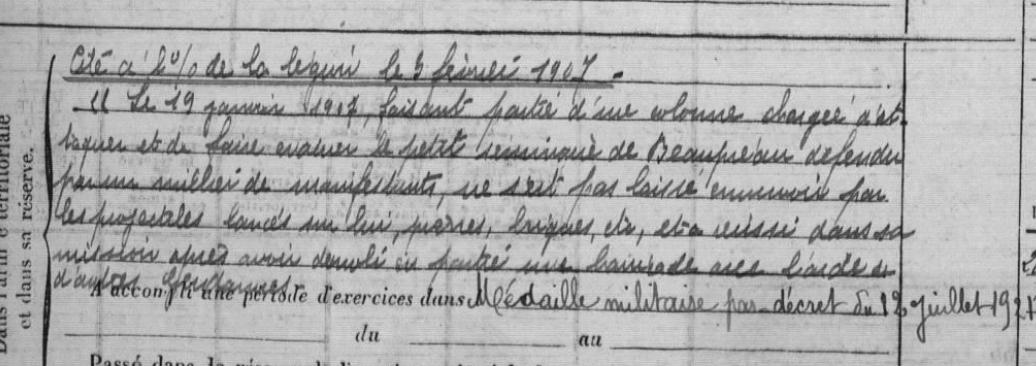 Cité à l'O/ de la légion le 3 février 1907 -
" Le 19 janvier 1907, faisant partie d'une colonne chargée d'at-
taquer et de faire évacuer le petit séminaire de Beaupreau défendu
par un millier de manifestants, ne s'est pas laissé émouvoir par
les projectiles lancés sur lui, pierres, briques, etc, et a réussi dans sa
mission après avoir démoli en partie une barricade avec l'aide de
d'autres gendarmes.
A accompli une période d'exercices dans Médaille militaire par décret du 12 juillet 192
du au
Passé dans la réserve de l'
Dans l'armée territoriale
et dans sa réserve.